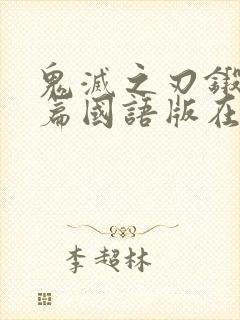 鬼滅之刃鍛
篇國語版在
李超林